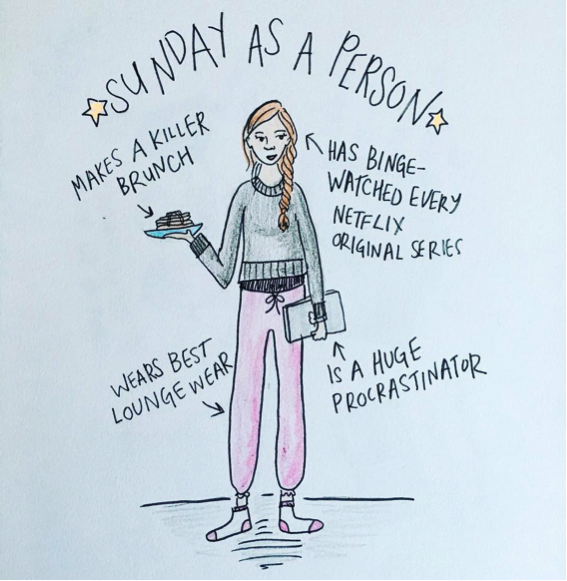 SUNDAY AS A PERSON
MAKES A KILLER
BRUNCH
HAS BINGE-
WATCHED EVERY
NETFLIX
ORIGINAL SERIES
WEARS BEST
LOUNGE WEAR
IS A HUGE
PROCRASTINATOR